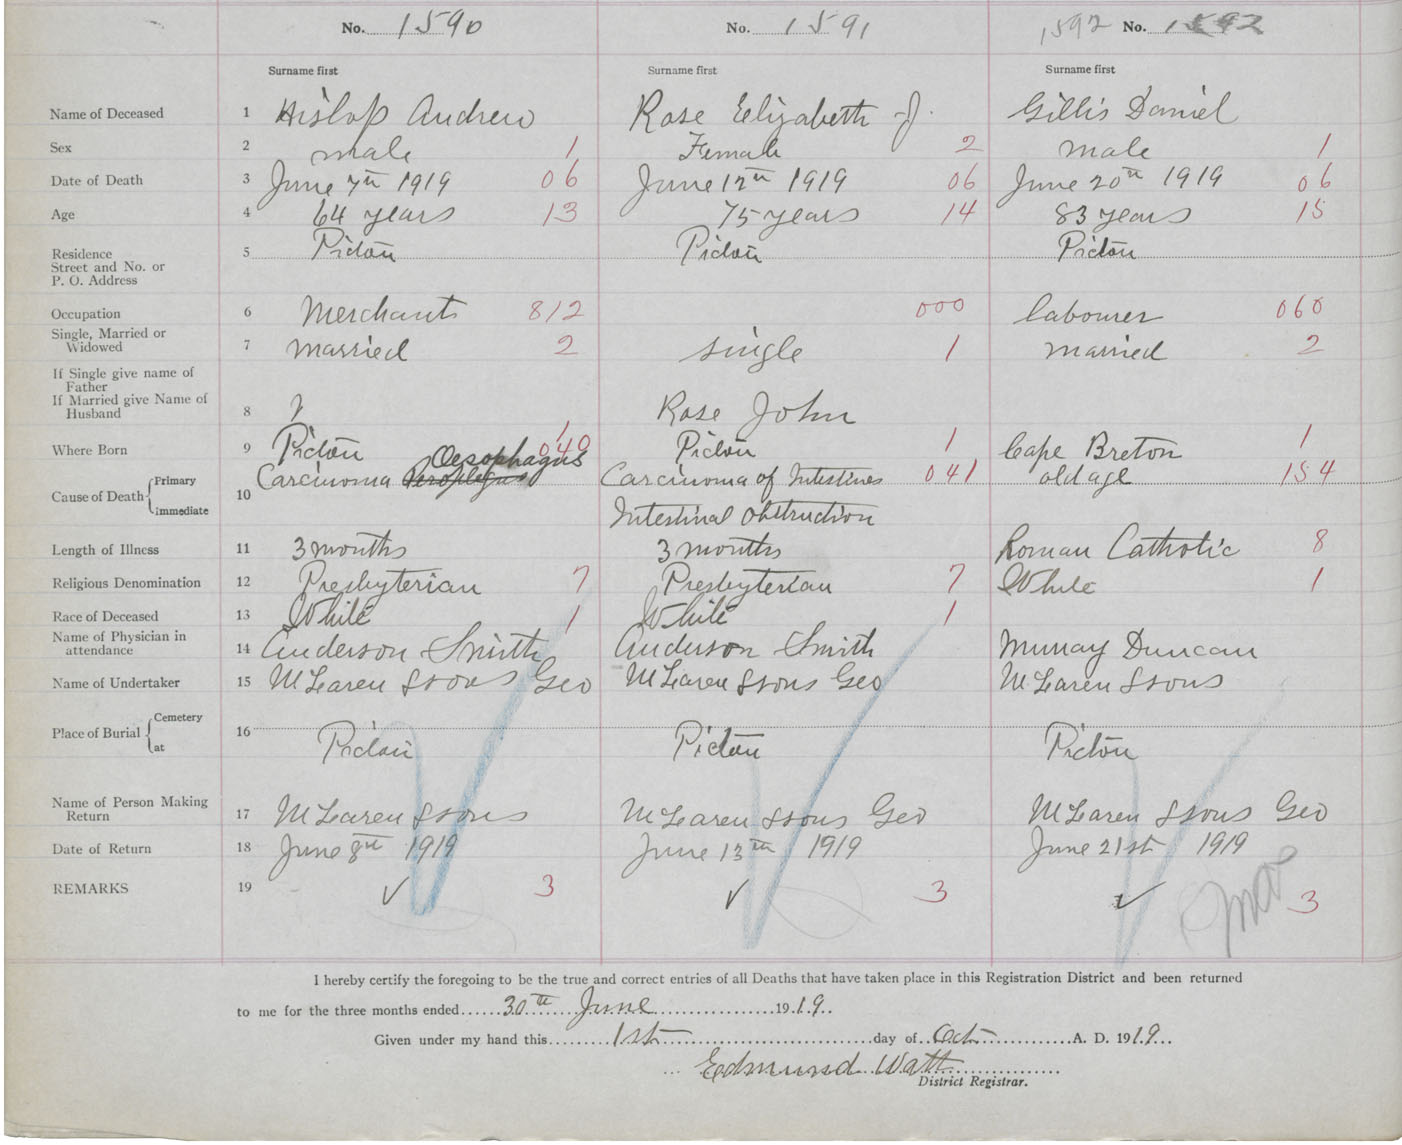 No. 1590 No. 1591 1592 No. 1592
Surname first Surname first Surname first
Name of Deceased 1 Hislop Andrew Rose Elizabeth J. Gillis Daniel
Sex 2 male 1 Female 2 male 1
Date of Death 3 June 7th 1919 06 June 12th 1919 06 June 20th 1919 06
Age 4 64 years 13 75 years 14 83 years 15
Residence
Street and No. or
P. O. Address
5 Pictou Pictou Pictou
Occupation 6 Merchants 812 000 labourer 060
Single, Married or
Widowed
7 married 2 single 1 married 2
If Single give name of
Father
If Married give Name of
Husband
8 ? Rose John
Where Born 9 Pictou 1 Pictou 1 Cape Breton 1
Cause of Death Primary immediate 10 Carcinoma Oesophagus 040 Carcinoma of Intestines 041 old age 154
Intestinal Obstruction
Length of Illness 11 3 months 3 months Roman Catholic 8
Religious Denomination 12 Presbyterian 7 Presbyterian 7 White 1
Race of Deceased 13 White 1 White 1
Name of Physician in
attendance
14 Anderson Smith Anderson Smith Murray Duncan
Name of Undertaker 15 McLaren & sons Geo McLaren & sons Geo McLaren & sons
Place of Burial Cemetery at 16 Pictou Pictou Pictou
Name of Person Making
Return
17 McLaren & sons McLaren & sons Geo McLaren & sons Geo
Date of Return 18 June 8th 1919 June 13th 1919 June 21st 1919
REMARKS 19 ✓ 3 ✓ 3 ✓ 3
I hereby certify the foregoing to be the true and correct entries of all Deaths that have taken place in this Registration District and been returned
to me for the three months ended 30th June 1919.
Given under my hand this 1st day of Oct A. D. 1919.
Edmund Watt
District Registrar.